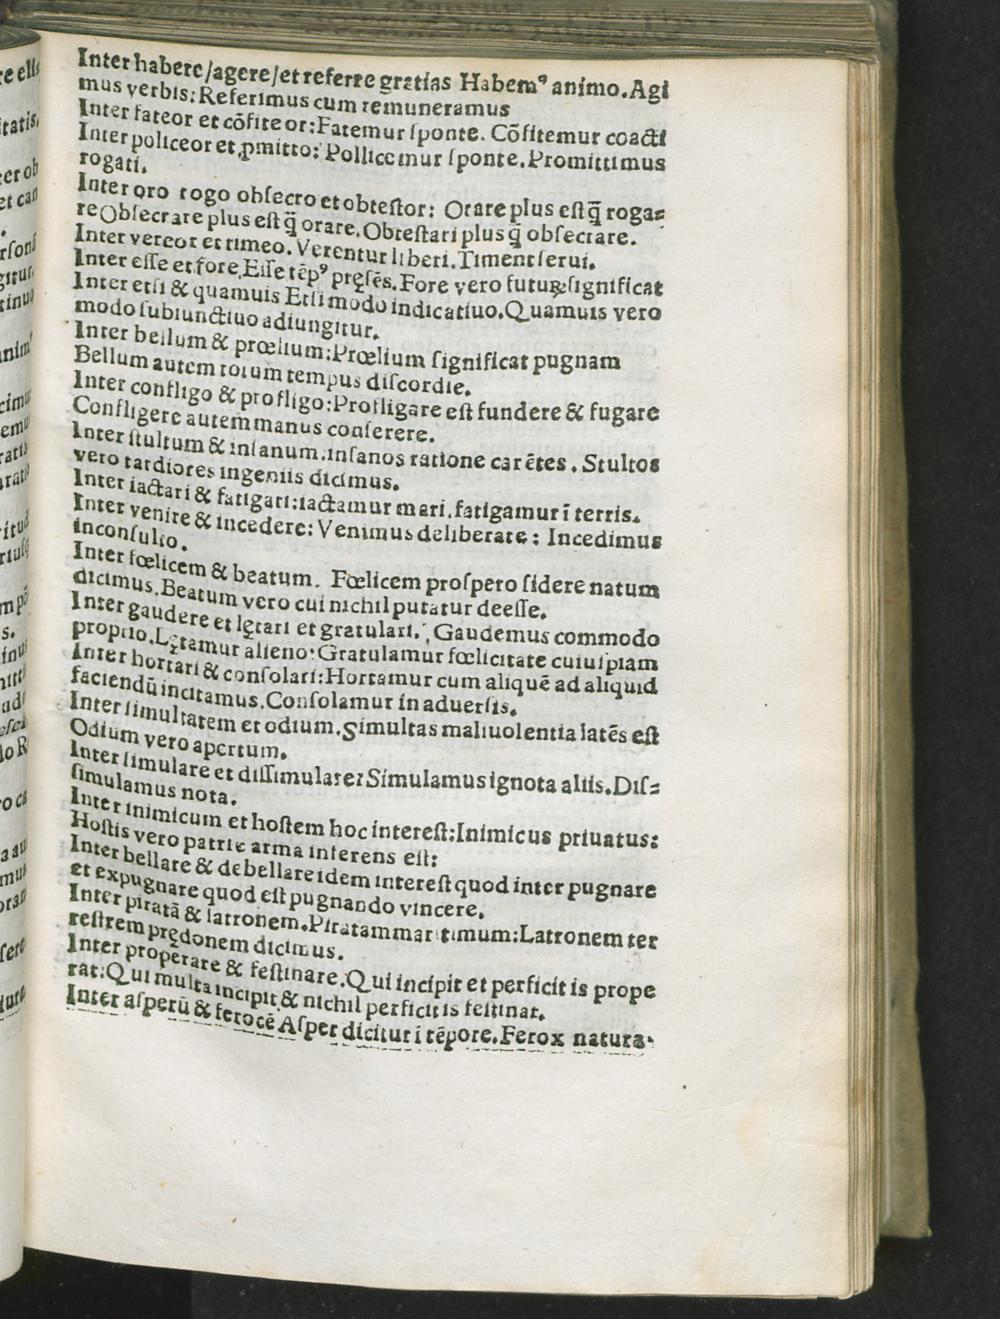 Inter habere/agere/et referre gratias Habemꝰ animo. Agi
mus verbis: Referimus cum remuneramus
Inter fateor et cõfiteor: Fatemur ſponte. Cõfitemur coacti
Inter policeor et ꝓmitto: Pollicemur ſponte. Promittimus
rogati.
Inter oro rogo obſecro et obteſtor: Orare plus eſt q̃ roga⸗
re Obſecrare plus eſt q̃ orare. Obteſtari plus q̃ obſecrare.
Inter vereor et timeo. Verentur liberi. Timent ſerui.
Inter eſſe et fore. Eſſe tẽpꝰ pręſẽs. Fore vero futuꝝ ſignificat
Inter etſi & quamuis Etſi modo indicatiuo. Quamuis vero
modo ſubiunctiuo adiungitur.
Inter bellum & prœlium: Prœlium ſignificat pugnam
Bellum autem totum tempus diſcordie.
Inter confligo & profligo: Profligare eſt fundere & fugare
Confligere autem manus conſerere.
Inter ſtultum & inſanum. inſanos ratione carẽtes. Stultos
vero tardiores ingeniis dicimus.
Inter iactari & fatigari: iactamur mari. fatigamur ĩ terris.
Inter venire & incedere: Venimus deliberate: Incedimus
inconſulto.
Inter fœlicem & beatum. Fœlicem proſpero ſidere natum
dicimus. Beatum vero cui nichil putatur deeſſe.
Inter gaudere et lętari et gratulari. Gaudemus commodo
proprio. Lętamur alieno: Gratulamur fœlicitate cuiuſpiam
Inter hortari & conſolari: Hortamur cum aliquẽ ad aliquid
faciendũ incitamus. Conſolamur in aduerſis.
Inter ſimultatem et odium. Simultas maliuolentia latẽs eſt
Odium vero apertum.
Inter ſimulare et diſſimulare: Simulamus ignota aliis. Diſ⸗
ſimulamus nota.
Inter inimicum et hoſtem hoc intereſt: Inimicus priuatus:
Hoſtis vero patrie arma inferens eſt:
Inter bellare & debellare idem intereſt quod inter pugnare
et expugnare quod eſt pugnando vincere.
Inter piratã & latronem. Piratam maritimum: Latronem ter
reſtrem prędonem dicimus.
Inter properare & feſtinare. Qui incipit et perficit is prope
rat: Qui multa incipit & nichil perficit is feſtinat.
Inter aſperũ & ferocẽ Aſper dicitur ĩ tẽpore. Ferox natura.